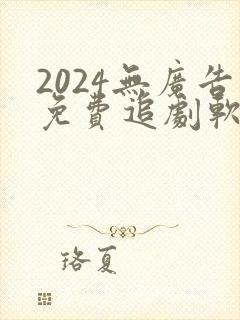 2024無廣告
免費追劇軟
珞夏